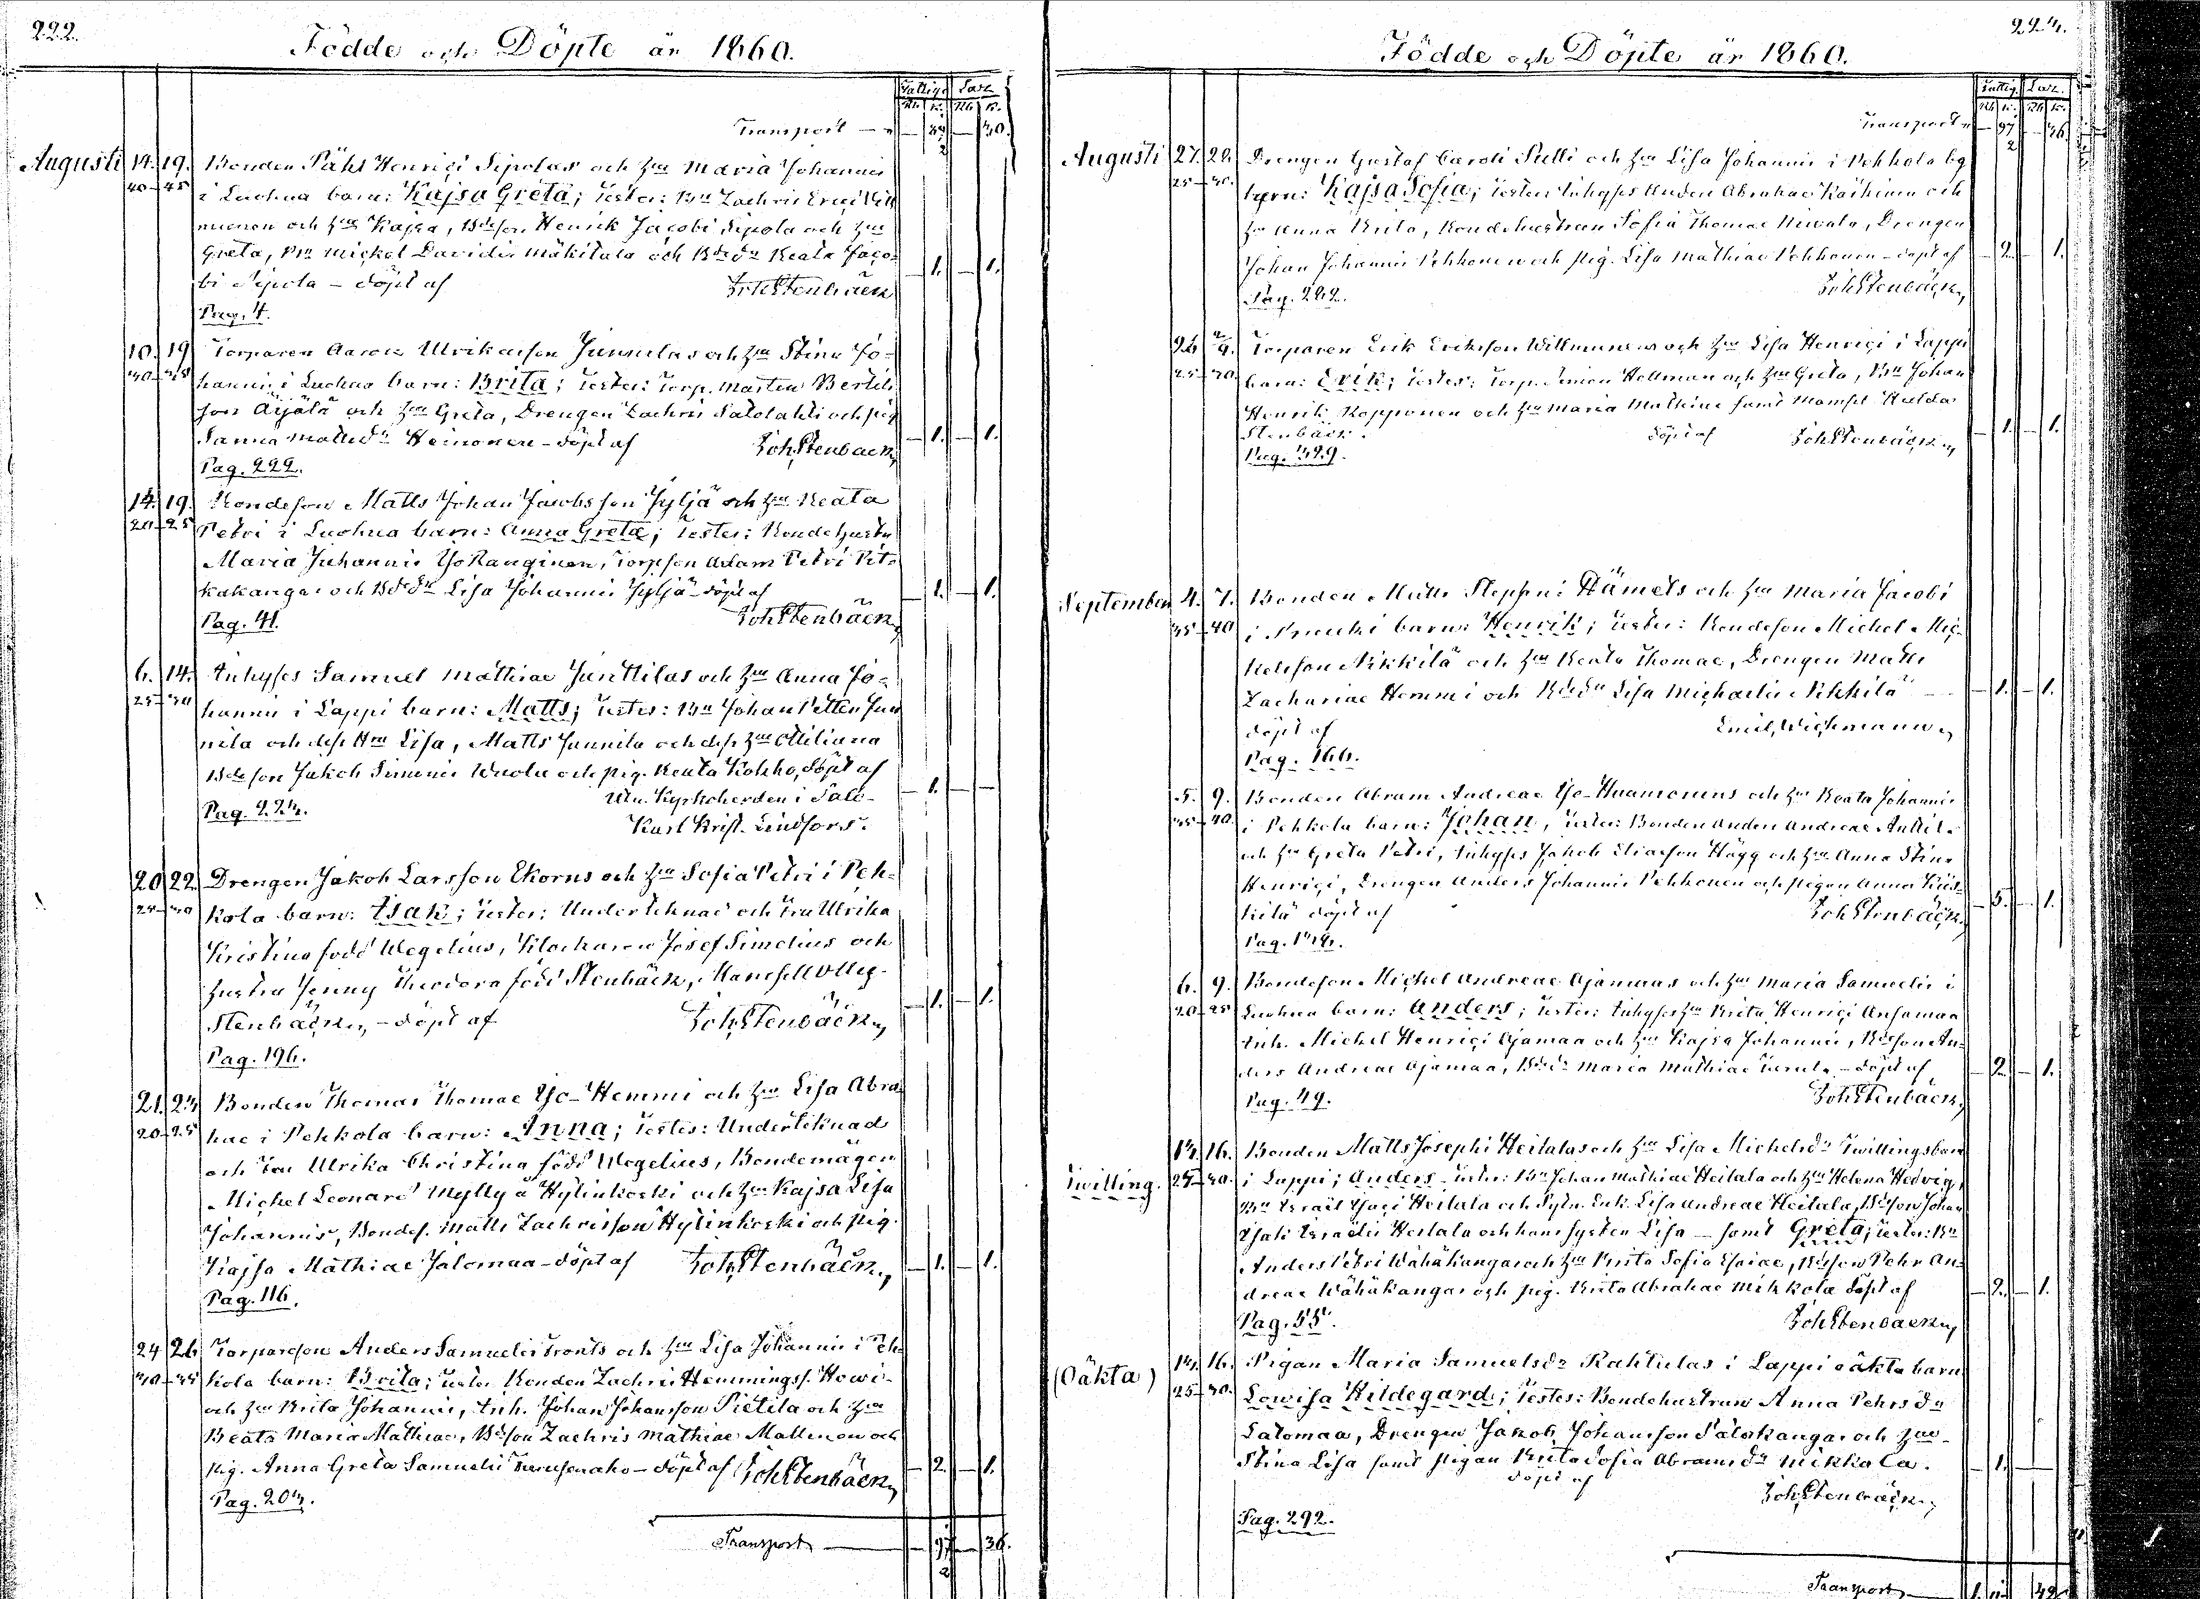 222.
Födde och Döpte år 1860.
Fattig. Lax.
Rb. k. Rb. k.
Transport
Augusti 14. 19. Bonden Pähr Henrici Sipolas och Hru Maria Johannis
40 — 45 i Luohua barn: Kajsa Greta; Testes: Bn Zachris Erici
och Hru Kajsa, Bdeson Henrik Jacobi Sipola och Hru
Greta, Bn Mickel Davidis Mäkitalo och Bdedr Beata Jaco-
bi Sipola — döpt af JohStenbäck — 1. — 1.
Pag. 4.
10. 19 Torparen Aaron Ulrikasson Junnilas och Hru Stina Jo-
hannis i Luohua barn: Brita; Testes: Torp. Mårten Bertils-
son Äijälä och Hru Greta, Drengen Zachris Salolahti och pig.
Sanna Mattsdr Heinonen — döpt af JohStenbäck — 1. — 1.
Pag. 222.
14. 19. Bondeson Matts Johan Jacobsson Jyljä och Hru Beata
20 — 25 Petri i Luohua barn: Anna Greta; Testes: Bondehustru
Maria Johannis Yokanginen, Torpson Adam Petri Pit-
kakangas och Bdedr Lisa Johannis Jyljä döpt af — 1. — 1.
Pag. 41. JohStenbäck
6. 14. Inhyses Samuel Mathiae Junttilas och Hru Anna Jo-
25 — 30 hannis i Lappi barn: Matts; Testes: Bn Johan Petter Jun-
nila och dess Hru Lisa, Matts Junnila och dess Hru Miliana
Bdeson Jakob Simonis Wuolu och pig. Beata Kokko, döpt af — 1. —
Pag. 224. Utn. Kyrkoherden i Salo
Karl Krist. Lindfors.
20 22 Drengen Jakob Larsson Ekorns och Hru Sofia Petri i Peh-
25 — 30 kola barn: Isak; Testes: Undertecknad och Fru Ulrika
Kristina född Wegelius, Klockaren Josef Simelius och
hustru Jenny Theodora född Stenbäck, Mamsell Olly
Stenbäck, — döpt af JohStenbäck — 1. — 1.
Pag. 196.
21. 23 Bonden Thomas Thomae Yo-Hemmi och Hru Lisa Abra-
20 — 25 hae i Pehkola barn: Anna; Testes: Undertecknad
och Fru Ulrika Christina född Wegelius, Bondemågen
Michel Leonard Mylly å Hylinkoski och Hru Kajsa Lisa
Johannis, Bondes. Matts Zachrisson Hylinkoski och pig.
Kajsa Mathiae Jalomaa — döpt af JohStenbäck — 1. — 1.
Pag. 116.
24 26 Torpareson Anders Samuelis Fronts och Hru Lisa Johannis i Peh-
kola barn: Brita; Testes Bonden Zachris Hemmingss. Howi-
och Hru Brita Johannis, Inh. Johan Johansson Pietila och Hru
Beata Maria Mathiae, Bdson Zachris Mathiae Mallinen och
pig. Anna Greta Samuelis — döpt af JohStenbäck — 2. — 1.
Pag. 203.
Transport — 97 — 36.
2
224.
Födde och Döpte år 1860.
Fattig. Lax.
Rb k. Rb k.
Transport — 97 — 36.
2
Augusti 27. 29. Drengen Gustaf Caroli Pulli och Hru Lisa Johannis i Pehkola by
25 — 30. barn: Kajsa Sofia; Testes: Inhyses Anders Abrahae Räihinen och
Hru Anna Brita, Bondehustrun Sofia Thomae Niwala, Drengen
Johan Johannis Pehkonen och pig. Lisa Mathiae Pehkonen — döpt af — 2. — 1.
Pag. 202. JohStenbäck
26 2/9. Torparen Erik Eriksson Willmunens och Hru Lisa Henrici i Lappi
25 — 30 barn: Erik; Testes: Torp. Simon Hollman och Hru Greta, Bn Johan
Henrik Kopponen och Hru Maria Mathiae samt Mamsell Hulda
Stenbäck. döpt af JohStenbäck — 1. — 1.
Pag. 329.
September 4. 7. Bonden Matts Steph:i Hämets och Hru Maria Jacobi
35 — 40 i barn: Henrik; Testes: Bondeson Michel Mic-
kelsson Nikkilä och Hru Beata Thomae, Drengen Matts
Zachariae Hemmi och Bdedr Lisa Michaelis Nikkilä — 1. — 1.
döpt af Emil Wichmann
Pag. 166.
5. 9. Bonden Abram Andreae Yo-Huamonens och Hru Beata Johannis
35 — 40 i Pehkola barn: Johan, Testes: Bonden Anders Andreae Anttila
och Hru Greta Petri, Inhyses Jakob Eliasson Hägg och Hru Anna Stina
Henrici, Drengen Anders Johannis Pehkonen och pigan Anna
döpt af JohStenbäck — 5. — 1.
6. 9. Bondeson Michel Andreae Ojamaas och Hru Maria Samuelis i
20 25 Luohua barn: Anders; Testes: Inhyses Hru Brita Henrici
Inh. Michel Henrici Ojamaa och Hru Kajsa Johannis, Bdeson An-
ders Andreae Ojamaa, Bdedr Maria Mathiae — döpt af — 2. — 1.
Pag. 49. JohStenbäck
13. 16. Bonden Matts Josephi Heitalas och Hru Lisa Mickelsdr Twillingsbarn
Twilling. 25 — 30. i Lappi; Anders — Testes: Bn Johan Mathiae Heitala och Hru Helena Hedvig,
Bn Israel Isaci Heitala och Sytn. Enk. Lisa Andreae Heitala, Bdson Johan
Isak Israelis Heitala och hans syster Lisa — samt Greta; Testes: Bn
Anders Petri Wähäkangas och Hru Brita Sofia Esaiae, Bdeson Pehr An-
dreae Wähäkangas och pig. Brita Abrahae Mikkola döpt af — 2. — 1.
Pag. 55. JohStenbäck
(Oäkta) 13. 16. Pigan Maria Samuelsdr Rahtulas i Lappi oäkta barn
25 — 30. Lowisa Hildegard; Testes: Bondehustrun Anna Pehrsdr
Salomaa, Drengen Jakob Johansson Palokangas och Hru
Stina Lisa samt pigan Brita Sofia Abramsdr Mikkola. — 1. —
döpt af JohStenbäck
Pag. 292.
Transport